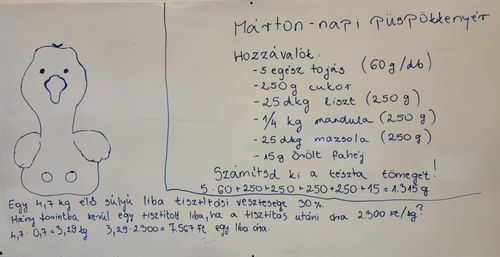 Márton-napi püspökkenyér
Hozzávalók:
- 5 egész tojás (60g/db)
- 250g cukor
- 25dkg liszt (250g)
- 1/4 kg mandula (250g)
- 25dkg mazsola (250g)
- 15g őrölt fahéj
Számítsd ki a tészta tömegét!
5·60+250+250+250+250+15=1.315g
Egy 4,7 kg élő súlyú liba tisztítási vesztesége 30%.
Hány forintba kerül egy tisztított liba, ha a tisztítás utáni ára 2300 Ft/kg?
4,7·0,7=3,29kg 3,29·2300=7.567Ft egy liba ára.